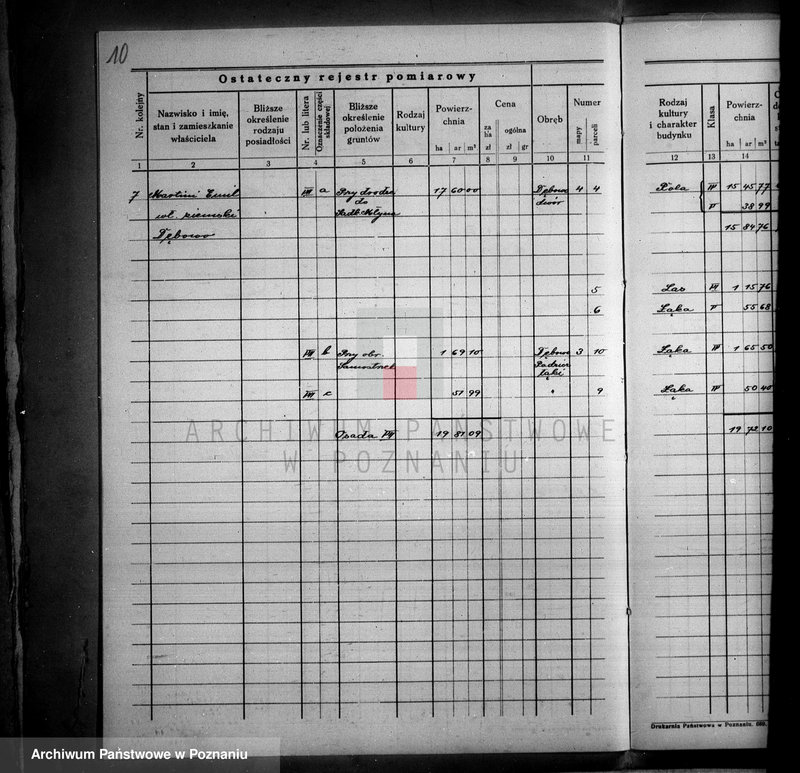 10
Ostateczny rejestr pomiarowy
Nr. kolejny
Nazwisko i imię, stan i zamieszkanie właściciela
Bliższe określenie rodzaju posiadłości
Nr. lub litera
Oznaczenie części składowej
Bliższe określenie położenia gruntów
Rodzaj kultury
Powierzchnia
ha ar m²
Cena
za ha
zł
ogólna
zł gr
Obręb
Numer
mapy
parceli
Rodzaj kultury i charakter budynku
Klasa
Powierzchnia
ha ar m²
1 2 3 4 5 6 7 8 9 10 11 12 13 14
7 Martini Emil VII a Przy drodze 17 60 00 Dębowo 4 4 Rola IV 15 45 77
wł. ziemski do dwór V 38 99
Dębowo 15 84 76
5 Las VII 1 15 76
6 Łąka V 55 68
VII b Przy obr. 1 69 10 Dębowo 3 10 Łąka IV 1 65 50
VII c 51 99 " 9 Łąka IV 50 40
Osada VII 19 81 09 19 72 10
ARCHIWUM PAŃSTWOWE
W POZNANIU
Drukarnia Państwowa w Poznaniu.
Archiwum Państwowe w Poznaniu